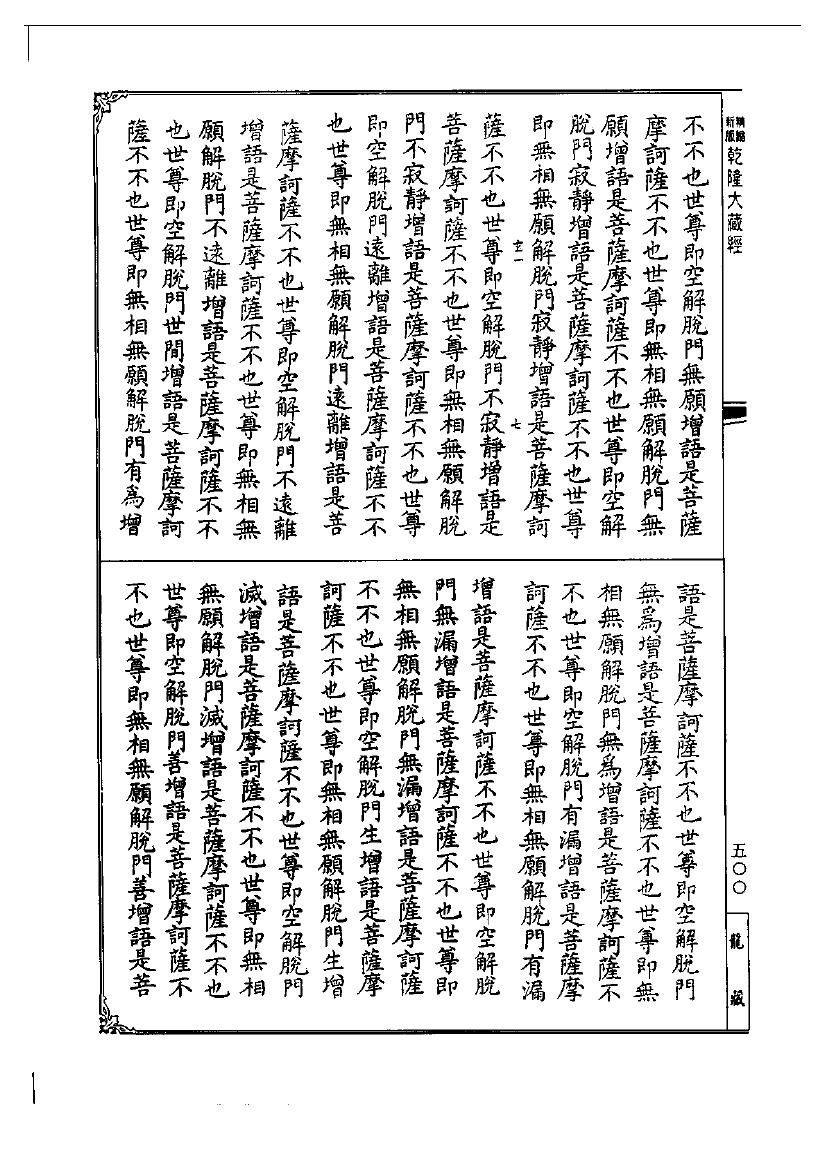 新版
乾隆大藏經
不不也世尊即空解脫門無願增語是菩薩
摩訶薩不不也世尊即無相無願解脫門無
願增語是菩薩摩訶薩不不也世尊即空解
脫門寂靜增語是菩薩摩訶薩不不也世尊
即無相無願解脫門寂靜增語是菩薩摩訶
七
薩不不也世尊即空解脫門不寂靜增語是
菩薩摩訶薩不不也世尊即無相無願解脫
門不寂靜增語是菩薩摩訶薩不不也世尊
即空解脫門遠離增語是菩薩摩訶薩不不
也世尊即無相無願解脫門遠離增語是菩
薩摩訶薩不不也世尊即空解脫門不遠離
增語是菩薩摩訶薩不不也世尊即無相無
願解脫門不遠離增語是菩薩摩訶薩不不
也世尊即空解脫門世間增語是菩薩摩訶
薩不不也世尊即無相無願解脫門有為增
語是菩薩摩訶薩不不也世尊即空解脫門
無為增語是菩薩摩訶薩不不也世尊即無
相無願解脫門無為增語是菩薩摩訶薩不
不也世尊即空解脫門有漏增語是菩薩摩
訶薩不不也世尊即無相無願解脫門有漏
增語是菩薩摩訶薩不不也世尊即空解脫
門無漏增語是菩薩摩訶薩不不也世尊即
無相無願解脫門無漏增語是菩薩摩訶薩
不不也世尊即空解脫門生增語是菩薩摩
訶薩不不也世尊即無相無願解脫門生增
語是菩薩摩訶薩不不也世尊即空解脫門
滅增語是菩薩摩訶薩不不也世尊即無相
無願解脫門滅增語是菩薩摩訶薩不不也
世尊即空解脫門善增語是菩薩摩訶薩不
不也世尊即無相無願解脫門善增語是菩
五〇〇
龍藏